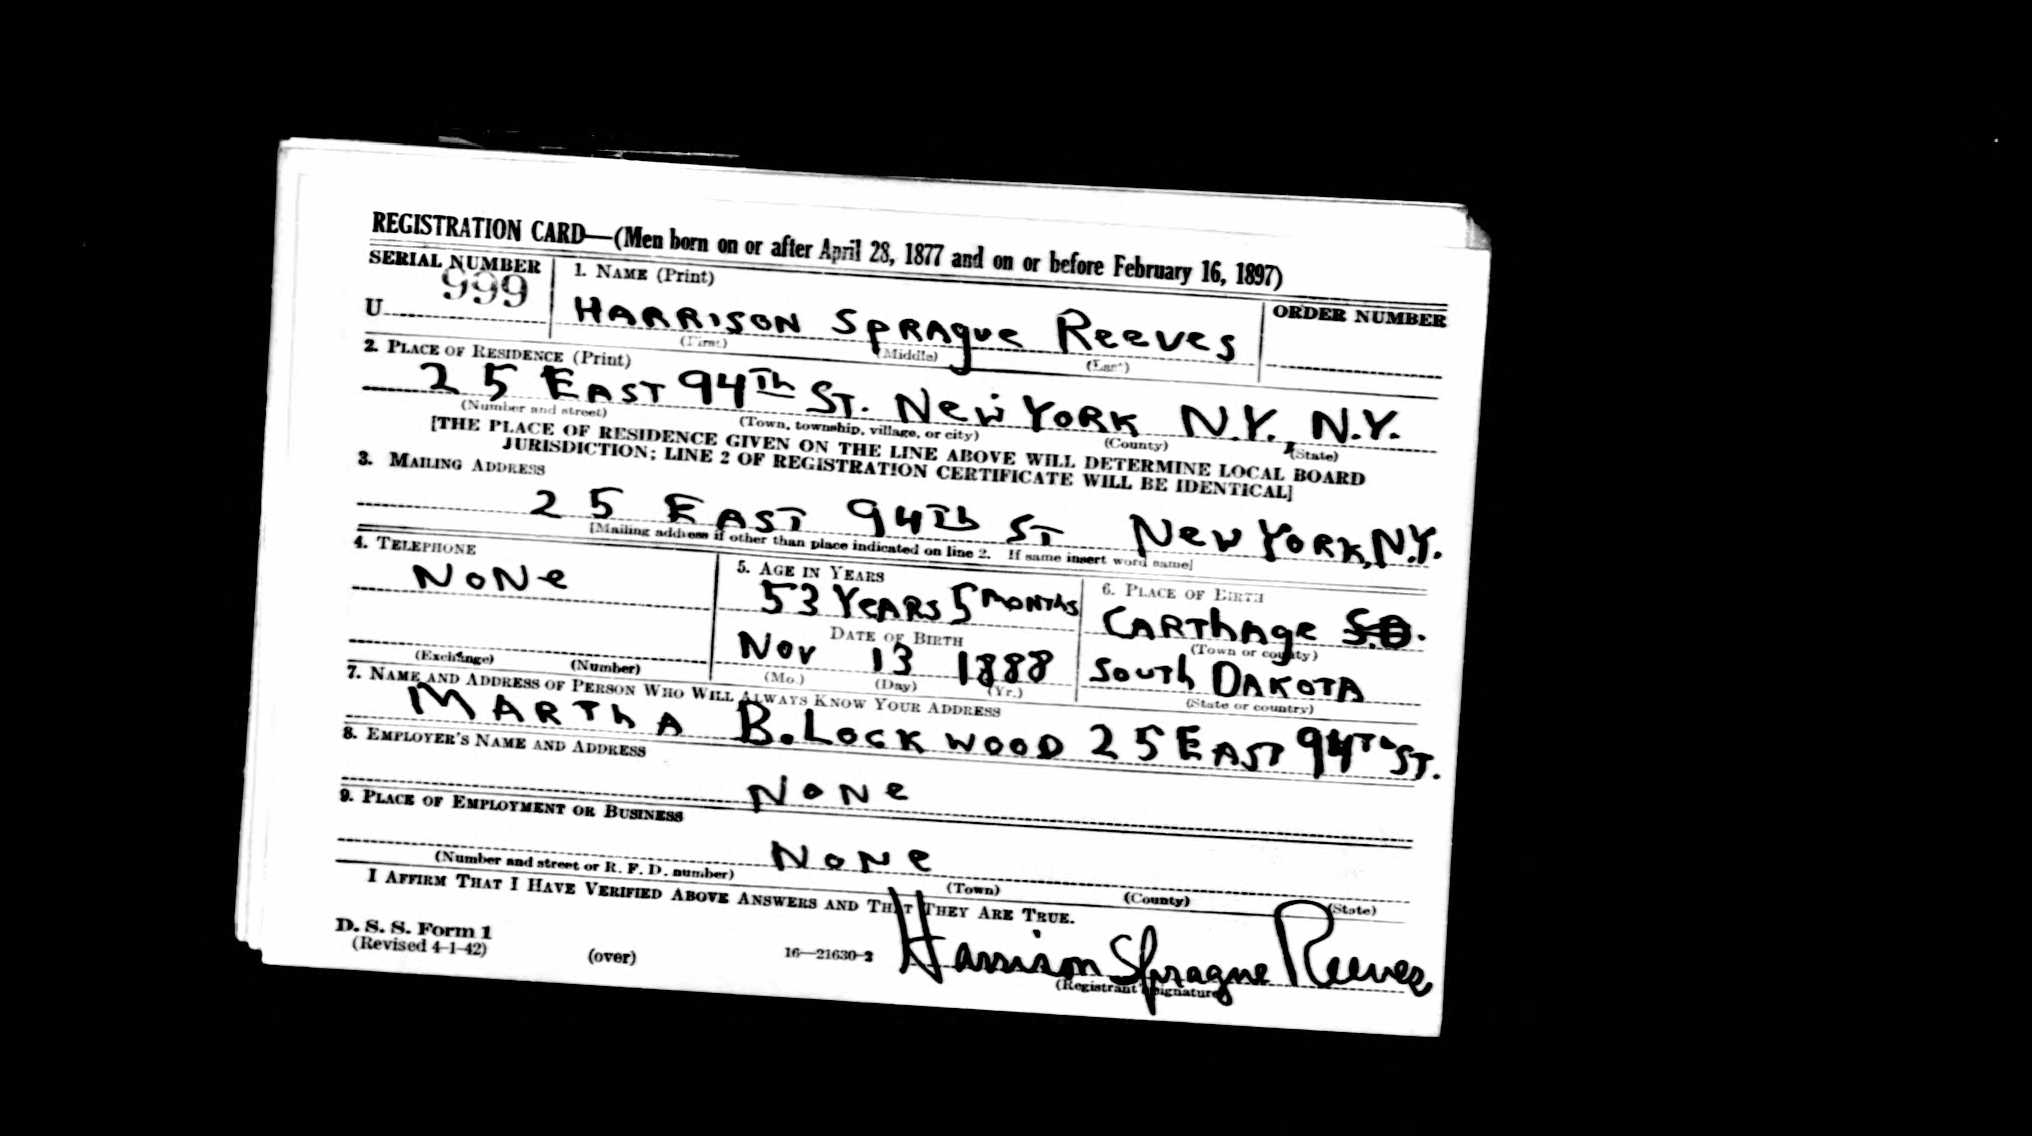 REGISTRATION CARD—(Men born on or after April 28, 1877 and on or before February 16, 1897)
SERIAL NUMBER
1. NAME (Print)
ORDER NUMBER
U 999
HARRISON SPRAGUE REEVES
(First) (Middle) (Last)
2. PLACE OF RESIDENCE (Print)
25 EAST 94TH ST. NEW YORK N.Y., N.Y.
(Number and street) (Town, township, village, or city) (County) (State)
[THE PLACE OF RESIDENCE GIVEN ON THE LINE ABOVE WILL DETERMINE LOCAL BOARD
JURISDICTION; LINE 2 OF REGISTRATION CERTIFICATE WILL BE IDENTICAL]
3. MAILING ADDRESS
25 EAST 94TH ST NEW YORK, N.Y.
[Mailing address if other than place indicated on line 2. If same insert word same]
4. TELEPHONE
NONE
(Exchange) (Number)
5. AGE IN YEARS
53 YEARS 5 MONTHS
DATE OF BIRTH
NOV 13 1888
(Mo.) (Day) (Yr.)
6. PLACE OF BIRTH
CARTHAGE
(Town or county)
SOUTH DAKOTA
(State or country)
7. NAME AND ADDRESS OF PERSON WHO WILL ALWAYS KNOW YOUR ADDRESS
MARTHA B. LOCKWOOD 25 EAST 94TH ST.
8. EMPLOYER'S NAME AND ADDRESS
NONE
9. PLACE OF EMPLOYMENT OR BUSINESS
NONE
(Number and street or R. F. D. number) (Town) (County) (State)
I AFFIRM THAT I HAVE VERIFIED ABOVE ANSWERS AND THAT THEY ARE TRUE.
D. S. S. Form 1
(Revised 4-1-42) (over) 16—21630-2
Harrison Sprague Reeves
(Registrant's signature)